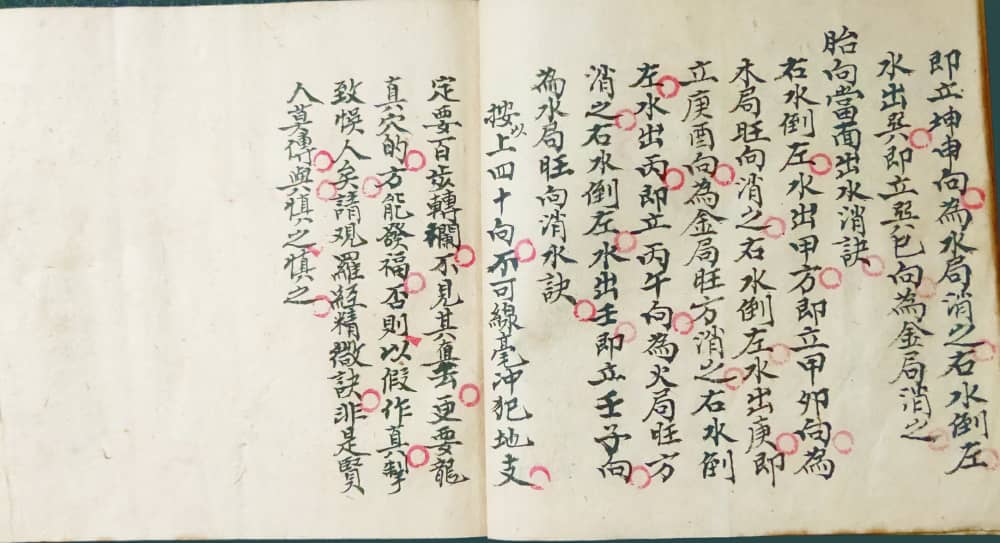 即立坤申向為水局消之右水倒左
水出巽即立巽巳向為金局消之
胎向當面出水消訣
右水倒左水出甲方即立甲卯向為
木局旺向消之右水倒左水出庚即
立庚酉向為金局旺方消之右水倒
左水出丙即立丙午向為火局旺方
消之右水倒左水出壬即立壬子向
為水局旺向消水訣
按以上四十向不可線毫冲犯地支
定要百步轉欄不見其去更要龍
真穴的方能發福否則以假作真
致悮人矣請观羅經精微訣非是賢
人莫傳與慎之慎之